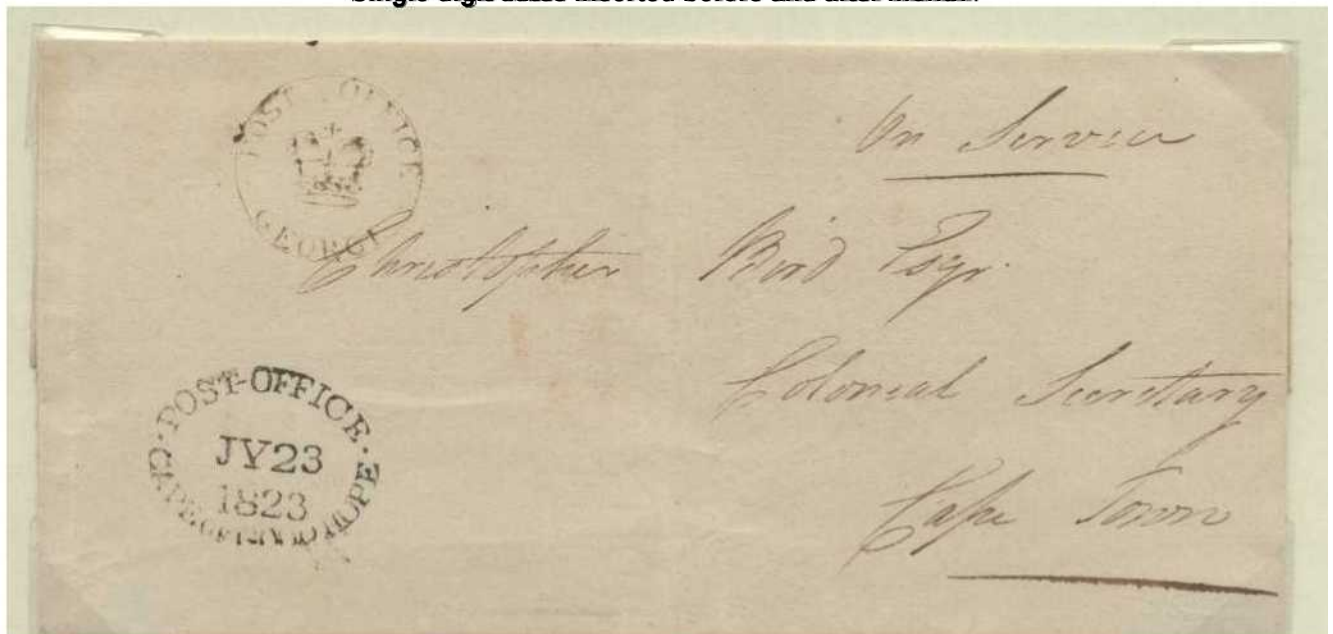 POST OFFICE
GEORGE
On Service
Christopher Bird Esqr.
Colonial Secretary
Cape Town
POST-OFFICE
JY23
1823
CAPE OF GOOD HOPE